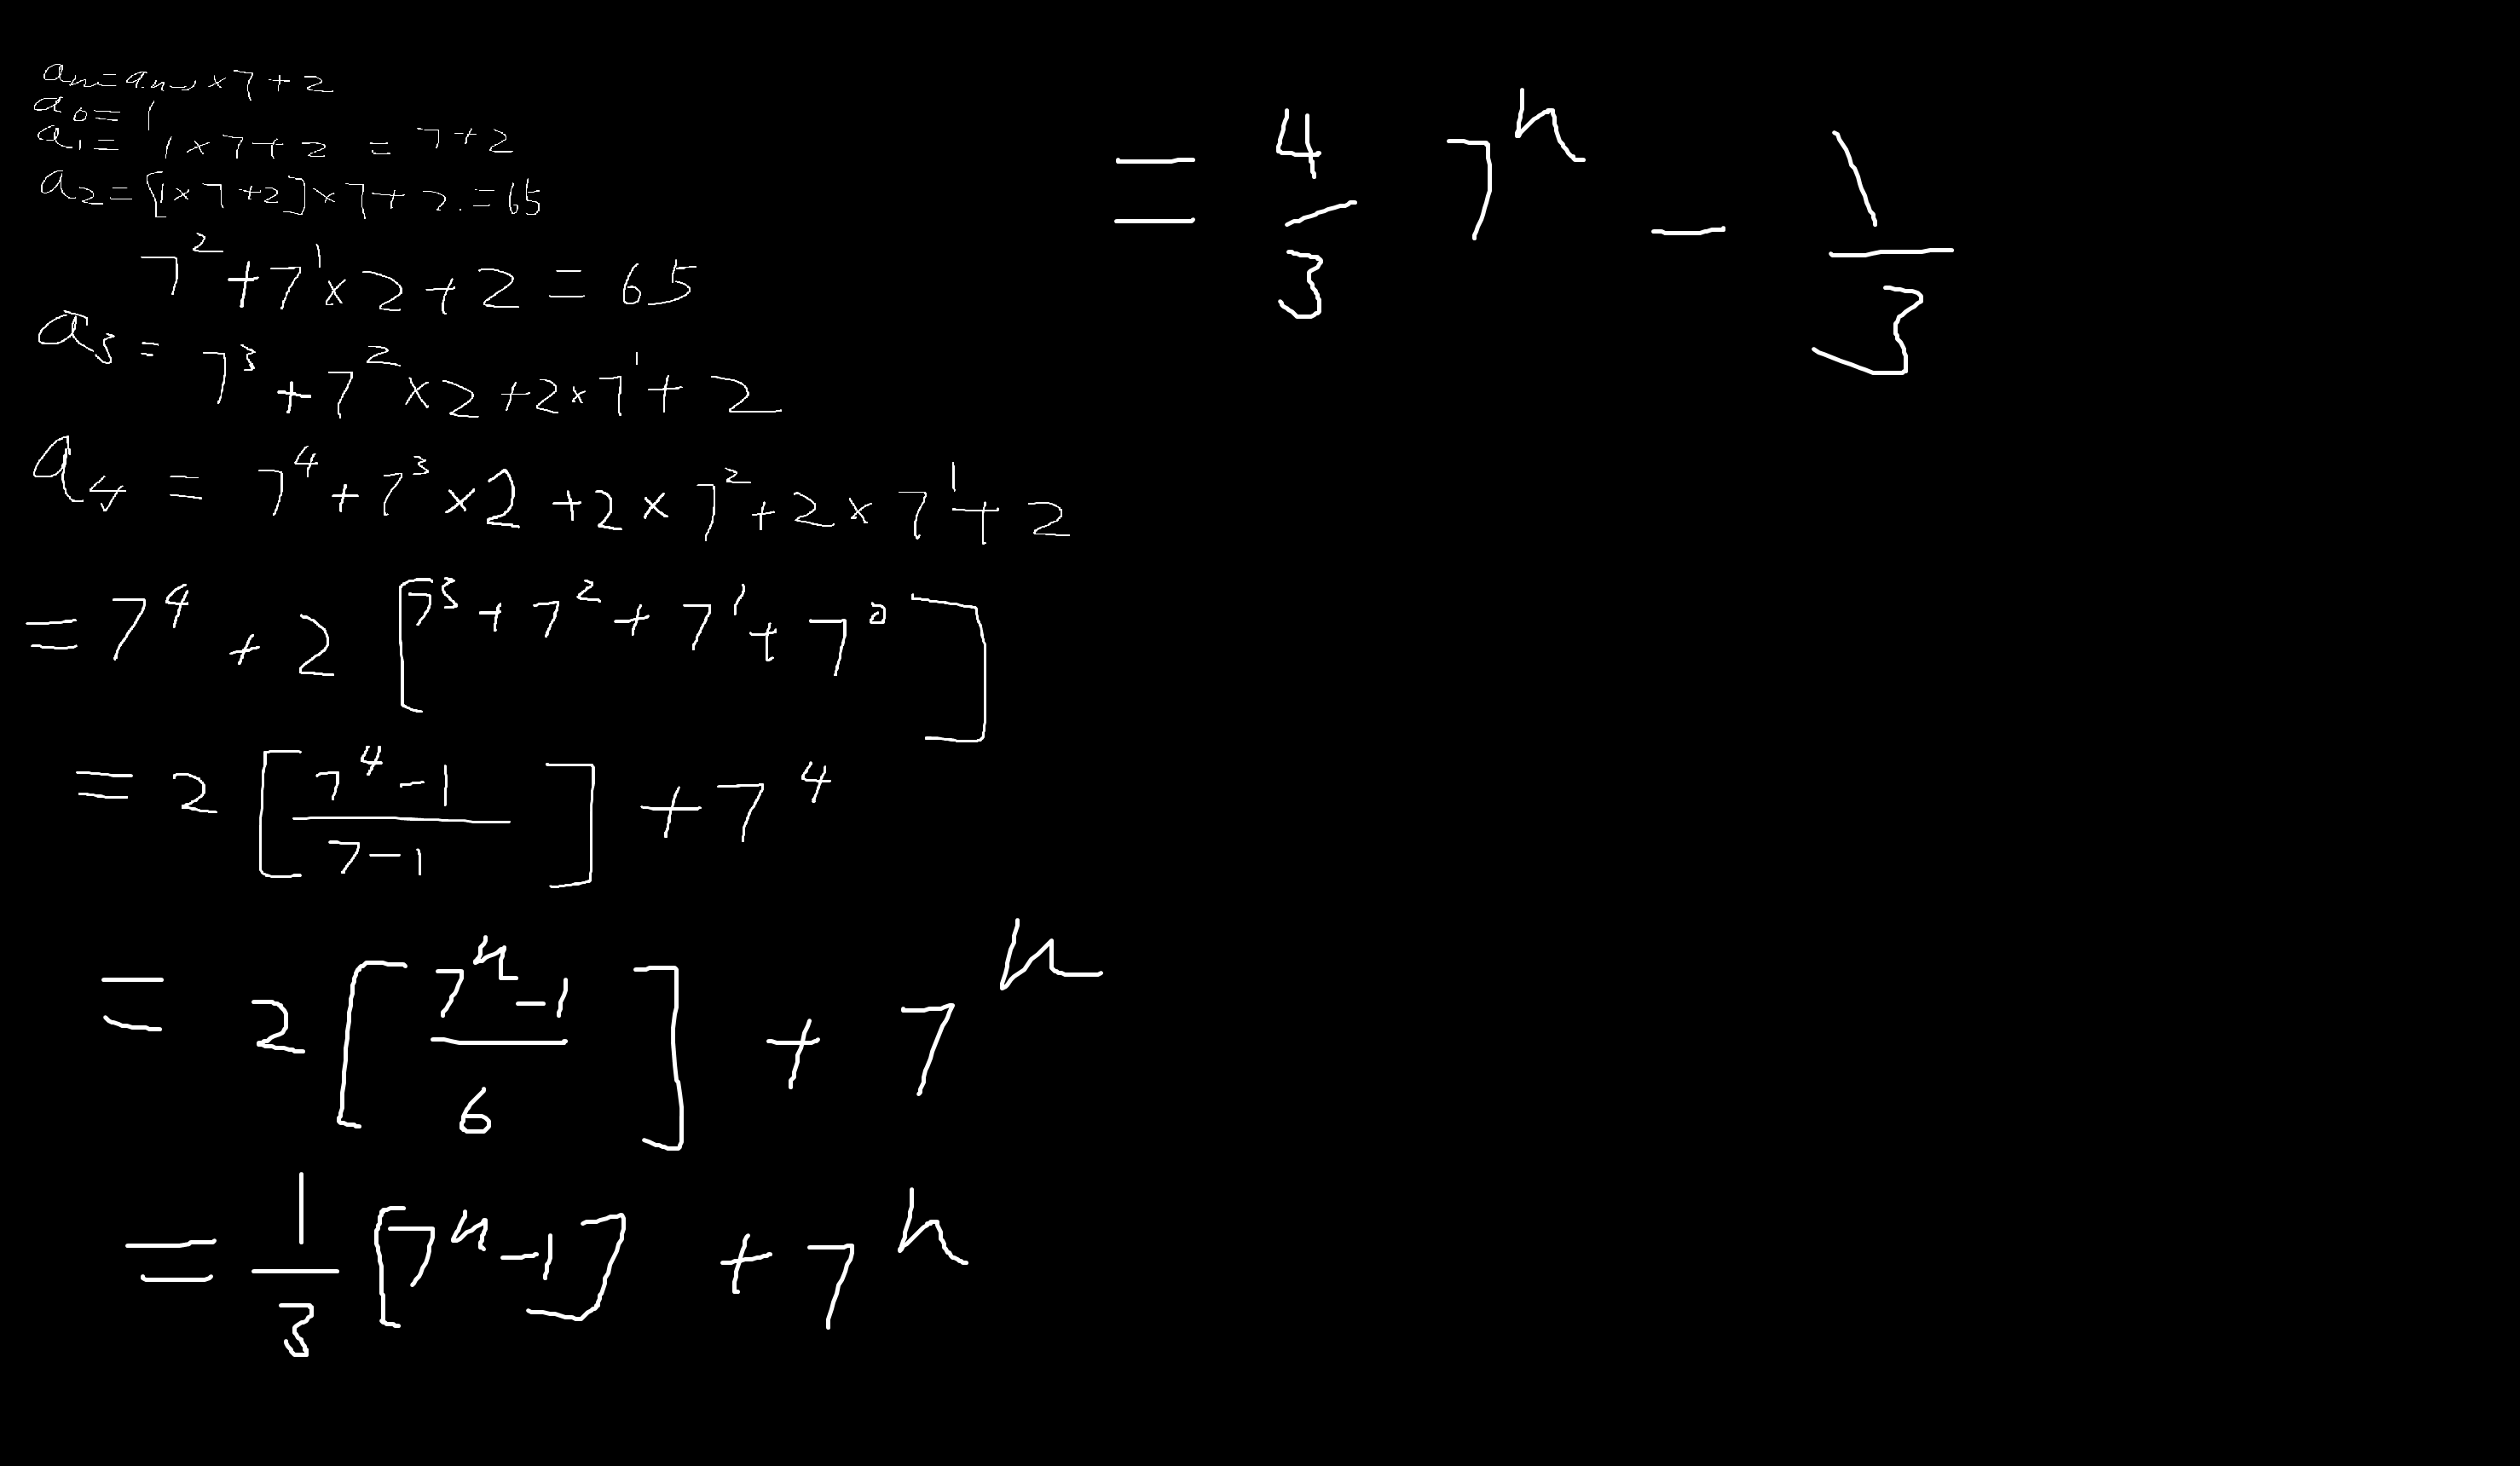 aₙ = aₙ₋₁ × 7 + 2
a₀ = 1
a₁ = 1 × 7 + 2 = 7 + 2
a₂ = [1 × 7 + 2] × 7 + 2. = 65
7² + 7¹ × 2 + 2 = 65
a₃ = 7³ + 7² × 2 + 2 × 7¹ + 2
a₄ = 7⁴ + 7³ × 2 + 2 × 7² + 2 × 7¹ + 2
= 7⁴ + 2 [7³ + 7² + 7¹ + 7⁰]
= 2 [(7⁴ - 1)/(7 - 1)] + 7⁴
= 2 [(7ⁿ - 1)/6] + 7ⁿ
= 1/3 [7ⁿ - 1] + 7ⁿ
= 4/3 7ⁿ - 1/3